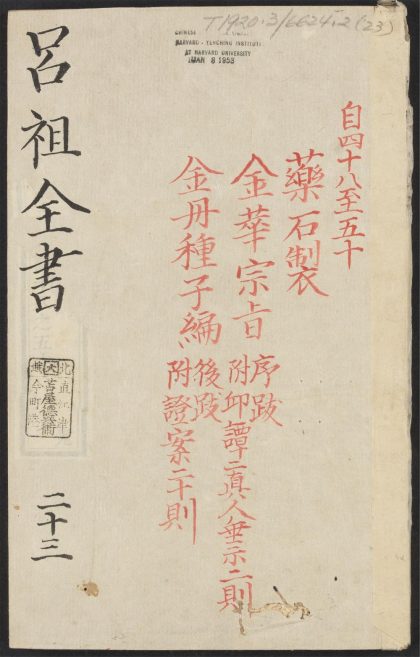 T1920.3/6624.2 (23)
CHINESE
HARVARD-YENCHING INSTITUTE
AT HARVARD UNIVERSITY
MAR 8 1953
自四十八至五十
藥石製
金華宗旨 序跋
附邱譚二真人垂示二則
金丹種子編 後跋
附證案二十則
呂祖全書
二十三